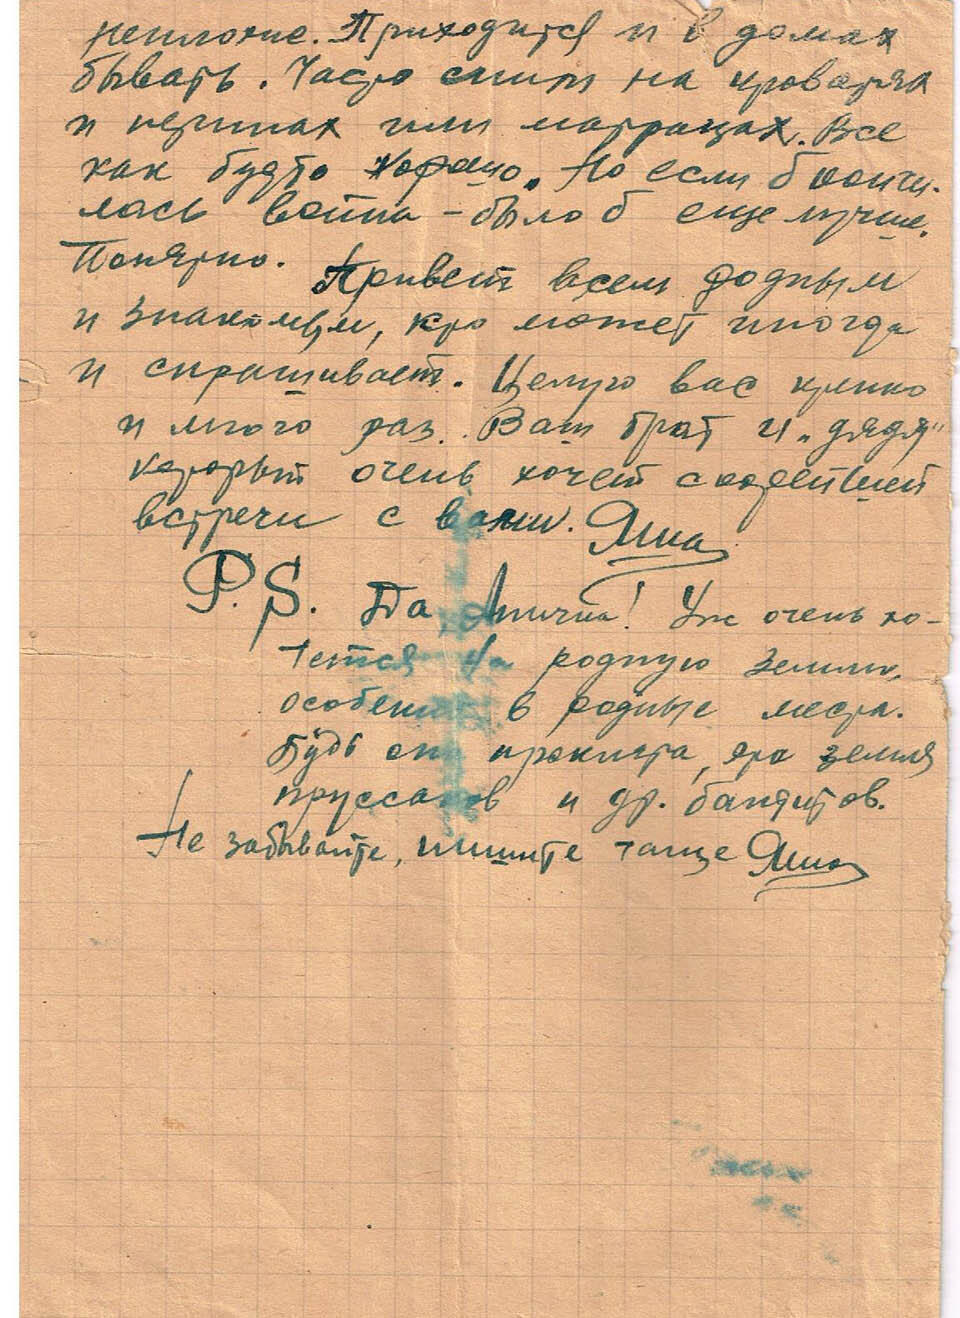 неплохие. Приходится и в домах
бывать. Часто спим на кроватях
и перинах или матрацах. Все
как будто хорошо. Но если б кончи-
лась война – было б еще лучше.
Понятно.
Привет всем родным
и знакомым, кто может иногда
и спрашивает. Целую вас крепко
и много раз. Ваш брат и „дядя"
который очень хочет скорейшей
встречи с вами. Яша
P.S. Да, Анична! Уж очень хо-
тется на родную землю,
особенно в родные места.
Будь она проклята, эта земля
пруссаков и др. бандитов.
Не забывайте, пишите чаще Яша